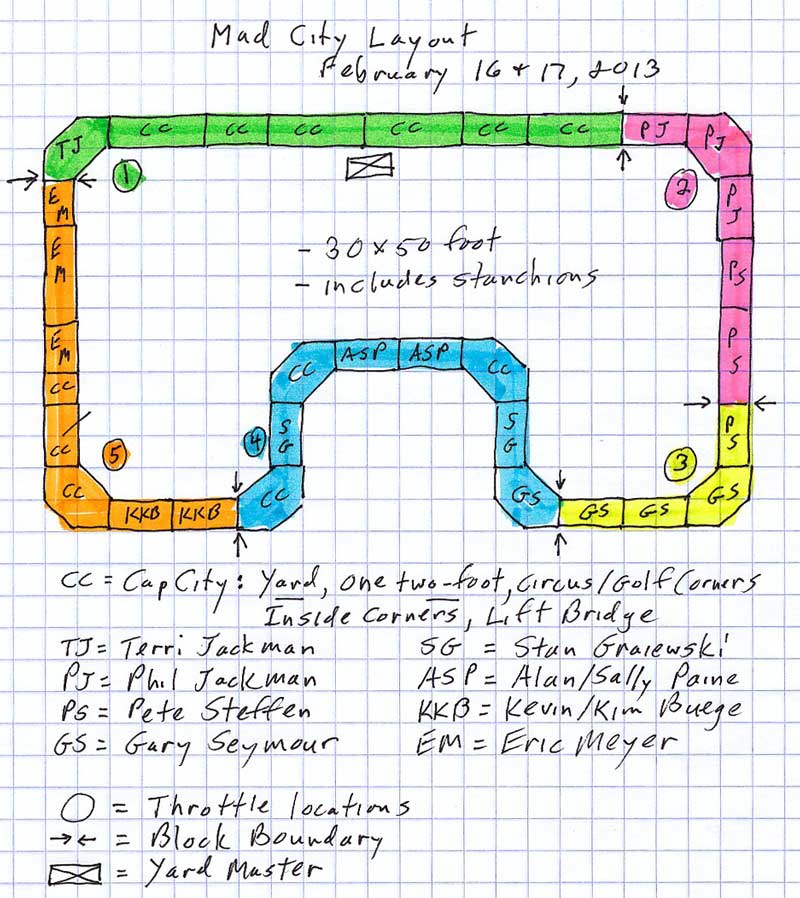 Mad City Layout
February 16 + 17, 2013
TJ CC CC CC CC CC CC PJ PJ
1 2
EM PJ
EM PS
- 30 x 50 foot
- includes stanchions
EM PS
CC ASP ASP CC
CC
CC SG SG PS
5 4 3
CC KKB KKB CC GS GS GS GS
CC = Cap City: Yard, one two-foot, Circus/Golf Corners
Inside Corners, Lift Bridge
TJ = Terri Jackman SG = Stan Graiewski
PJ = Phil Jackman ASP = Alan/Sally Paine
PS = Pete Steffen KKB = Kevin/Kim Buege
GS = Gary Seymour EM = Eric Meyer
= Throttle locations
= Block Boundary
= Yard Master